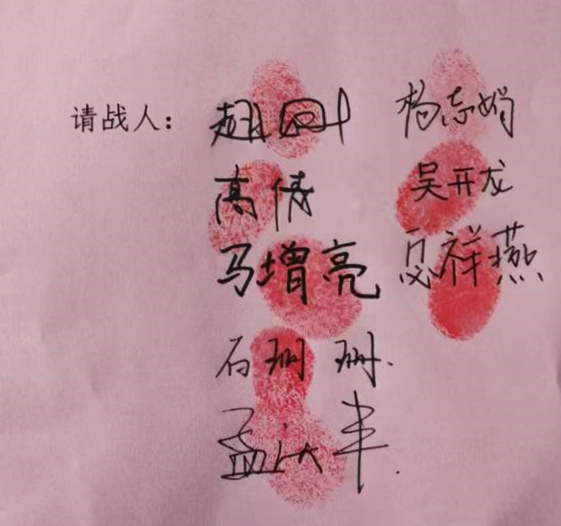 请战人：
杨志娟
高倩
吴开龙
马增亮
祥燕
石珊珊.
孟庆丰.